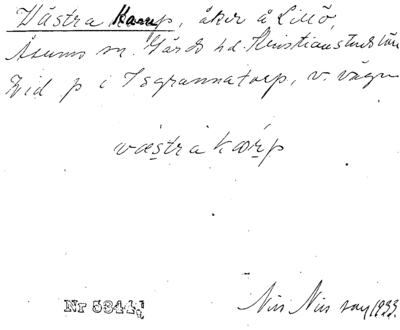 Västra Karup, åker å Lillö,
Åsums sn. Gärds hd. Kristianstads län
Vid p i Isgrannatorp, v. vägen
västra karp
Nr 5344
Nils Nilsson 1933.